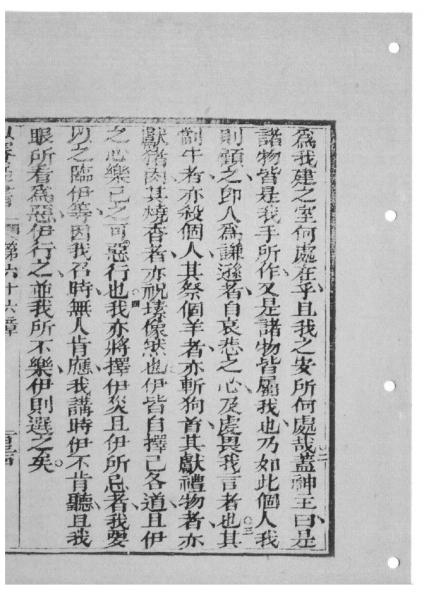 為我建之室何處在乎且我之安所何處哉蓋神王曰是
諸物皆是我手所作又是諸物皆屬我也乃如此個人我
則顧之即人為謙遜者自哀悲之心及處畏我言者也其
割牛者亦殺個人其祭個羊者亦斬狗首其獻禮物者亦
獻猪肉其燒香者亦祝壞像然也伊皆自擇己各道且伊
之心樂己之可惡行也我亦將擇伊災且伊所忌者我要
以之臨伊等因我召時無人肯應我講時伊不肯聽且我
眼所看為惡伊行之並我所不樂伊則選之矣
書 第六十六章